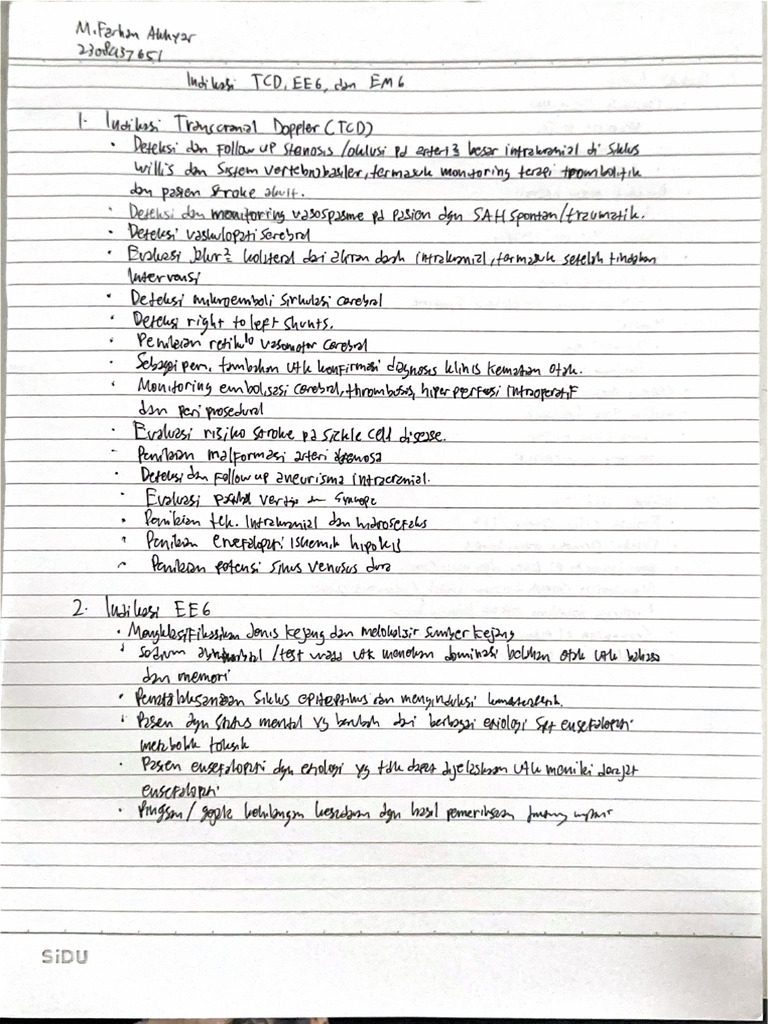 M. Farhan Akhyar
2308437651
Indikasi TCD, EEG, dan EMG
1. Indikasi Transcranial Doppler (TCD)
• Deteksi dan Follow up stenosis /oklusi pd arteri2 besar intrakranial di Sirkulus
Willis dan Sistem vertebrobasiler, termasuk monitoring terapi trombolitik
dan pasien stroke akut.
• Deteksi dan monitoring vasospasme pd pasien dgn SAH spontan/traumatik.
• Deteksi vaskulopati serebral
• Evaluasi Jalur2 kolateral dari aliran darah intrakranial, termasuk setelah tindakan
intervensi
• Deteksi mikroemboli sirkulasi cerebral
• Deteksi right to left shunts.
• Penilaian vasomotor cerebral
• Sebagai pem. tambahan utk konfirmasi diagnosis klinis kematian otak.
• Monitoring embolisasi cerebral, thrombosis, hiperperfusi intraoperatif
dan periprosedural
• Evaluasi risiko stroke pd sickle cell disease.
- Penilaian malformasi arteri
• Deteksi dan Follow up aneurisma intracranial.
• Evaluasi vertigo dan
• Penilaian tek. Intrakranial dan hidrosefalus
• Penilaian ensefalopati iskemik hipoksik
• Penilaian potensi sinus venosus dura
2. Indikasi EEG
• Mengklasifikasikan Jenis kejang dan melokalisir sumber kejang
• Sodium /test wada utk menekan dominasi belahan otak utk bahasa
dan memori
• Penatalaksanaan dan menginduksi
• Pasien dgn status mental yg berubah dari berbagai etiologi spt ensefalopati
metabolik toksik
• Pasien ensefalopati dgn etiologi yg tdk dapat dijelaskan utk menilai derajat
ensefalopati
• Pingsan / kehilangan kesadaran dgn hasil pemeriksaan
SiDU